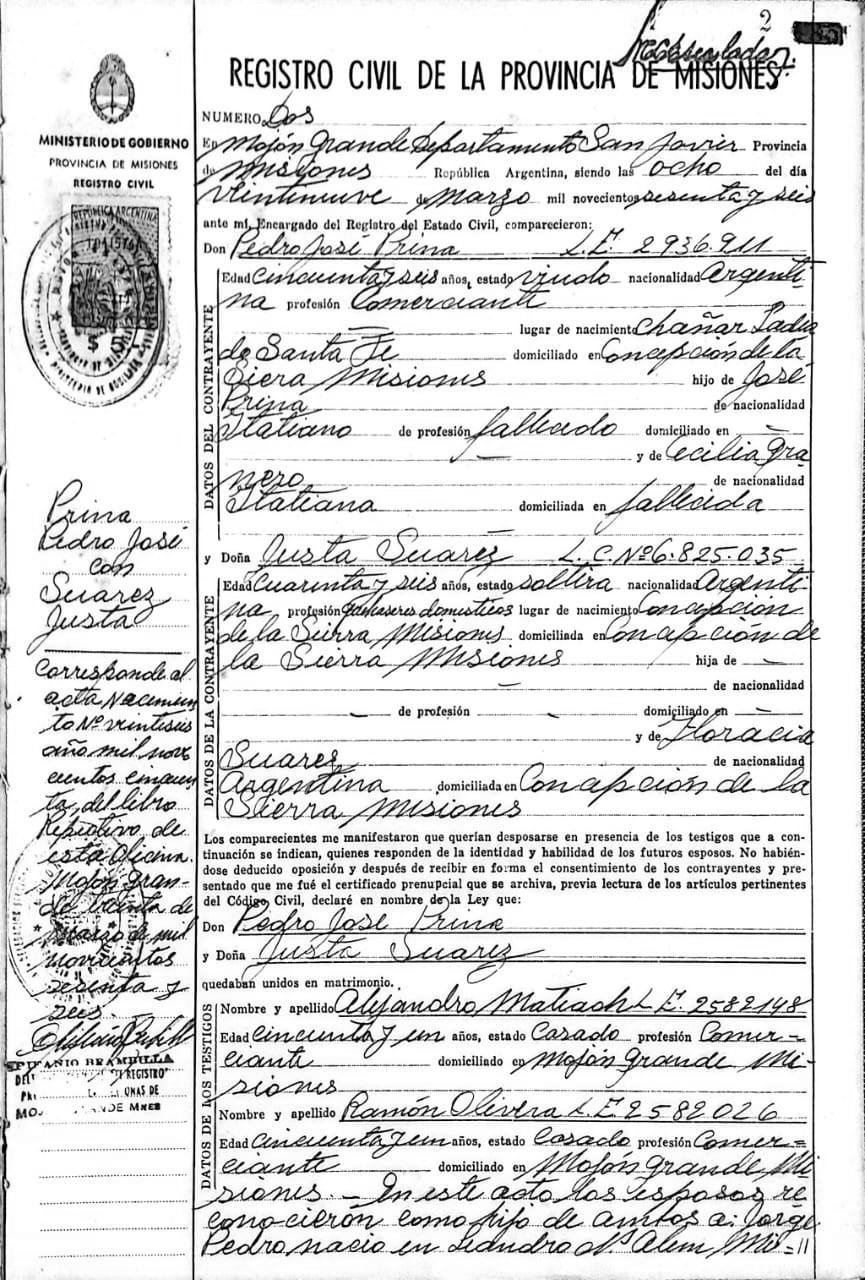 2
REGISTRO CIVIL DE LA PROVINCIA DE MISIONES
MINISTERIO DE GOBIERNO
PROVINCIA DE MISIONES
REGISTRO CIVIL
REPUBLICA ARGENTINA
$ 5
NUMERO Dos
En Mojón Grande Departamento San Javier Provincia
de Misiones República Argentina, siendo las ocho del día
veintinueve de Marzo mil novecientos sesenta y seis
ante mí, Encargado del Registro del Estado Civil, comparecieron:
Don Pedro José Prina L.E. 2936.911
DATOS DEL CONTRAYENTE
Edad cincuenta y seis años, estado viudo nacionalidad Argenti
na profesión Comerciante
— lugar de nacimiento Chañar Ladea
do Santa Fe domiciliado en Concepción de la
Siera Misiones hijo de José
Prina de nacionalidad
Italiano de profesión fallecido domiciliado en —
— y de Cecilia Gra
nero de nacionalidad
Italiana domiciliada en fallecida
y Doña Justa Suarez L.C. Nº 6.825.035
DATOS DE LA CONTRAYENTE
Edad cuarenta y seis años, estado soltera nacionalidad Argenti
na profesión quehaseres domesticos lugar de nacimiento Concepción
de la Sierra Misiones domiciliada en Concepción de
la Sierra Misiones hija de —
— de nacionalidad
— de profesión — domiciliado en —
y de Horacia
Suares de nacionalidad
Argentina domiciliada en Concepción de la
Sierra Misiones
Los comparecientes me manifestaron que querían desposarse en presencia de los testigos que a con-
tinuación se indican, quienes responden de la identidad y habilidad de los futuros esposos. No habién-
dose deducido oposición y después de recibir en forma el consentimiento de los contrayentes y pre-
sentado que me fué el certificado prenupcial que se archiva, previa lectura de los artículos pertinentes
del Código Civil, declaré en nombre de la Ley que:
Don Pedro José Prina
y Doña Justa Suarez
quedaban unidos en matrimonio.
DATOS DE LOS TESTIGOS
Nombre y apellido Alejandro Matiach L.E. 2582148
Edad cincuenta y un años, estado Casado profesión Comer=
ciante domiciliado en Mojón Grande Mi-
siones
Nombre y apellido Ramón Olivera L.E. 2582026
Edad cincuenta y un años, estado Casado profesión Comer=
ciante domiciliado en Mojón Grande, Mi
siones. — En este acto los esposos re
conocieron como hijo de ambos a: Jorge
Pedro nacio en Leandro N. Alem, Mi=//
Prina
Pedro José
con
Suarez
Justa
Corresponde al
acta Nacemien
to Nº veintiseis
año mil nove
cientos cincuen
ta, del libro
de
esta Oficina.
Mojón Gran-
de treinta de
Marzo de mil
novecientos
sesenta y
seis.
EPIFANIO BRAMBILLA
REGISTRO